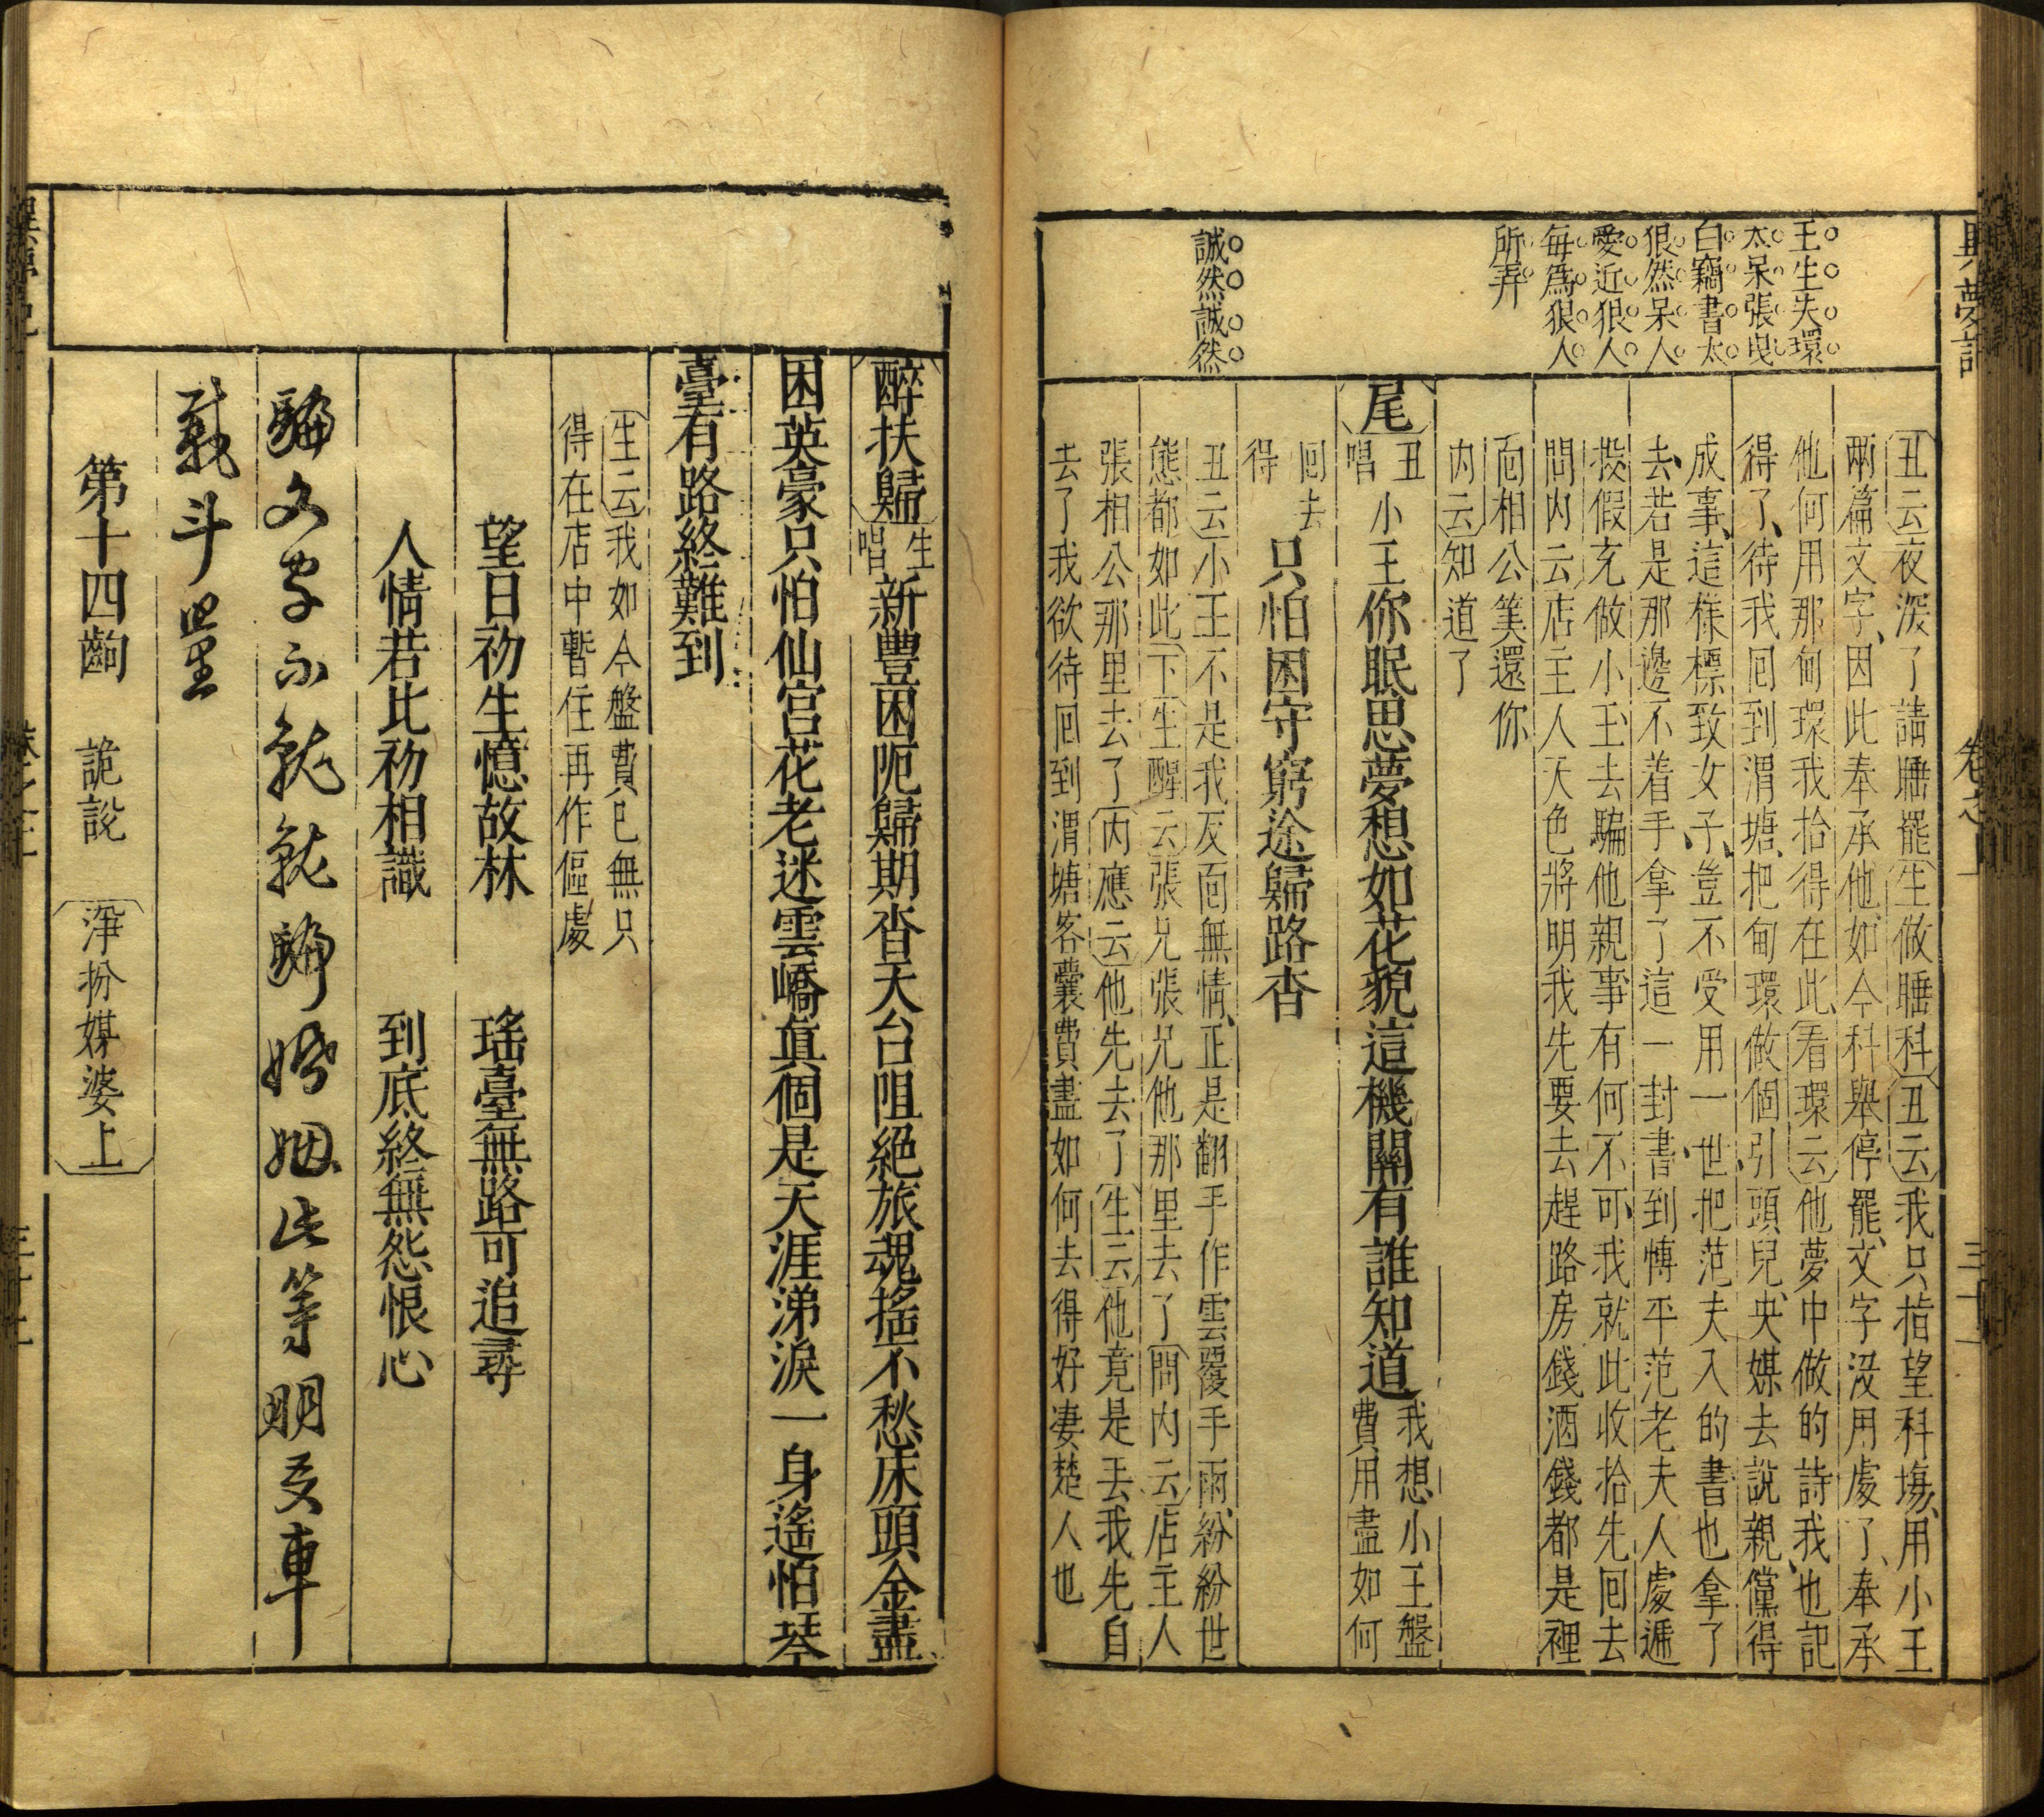 異夢記
卷之一
三十一
王生失環
太呆張曳
白竊書太
狠然呆人
愛近狠人
每爲狠人
所弄
誠然誠然
丑云夜深了請睡罷生做睡科丑云我只指望科塲用小王
兩篇文字因此奉承他如今科舉停罷文字没用處了奉承
他何用那甸環我拾得在此看環云他夢中做的詩我也記
得了待我囘到渭塘把甸環做個引頭兒央媒去說親儻得
成事這樣標致女子豈不受用一世把范夫入的書也拿了
去若是那邊不着手拿了這一封書到愽平范老夫人處逓
投假充做小王去騙他親事有何不可我就此收拾先囘去
問内云店主人天色將明我先要去趕路房錢酒錢都是裡
面相公筭還你
内云知道了
尾丑唱小王你眠思夢想如花貌這機關有誰知道我想小王盤費用盡如何
囘去得只怕困守窮途歸路杳
丑云小王不是我反面無情正是翻手作雲覆手雨紛紛世
態都如此下生醒云張兄張兄他那里去了問内云店主人
張相公那里去了内應云他先去了生云他竟是丟我先自
去了我欲待囘到渭塘客囊費盡如何去得好凄楚人也
醉扶歸生唱新豐困阨歸期杳天台阻絕旅魂揺不愁床頭金盡
困英豪只怕仙宮花老迷雲嶠眞個是天涯涕淚一身遙怕琴
臺有路終難到
生云我如今盤費已無只
得在店中暫住再作傴處
望日初生憶故林　瑤臺無路可追尋
人情若比初相識　到底終無怨恨心
騙文字不就就騙婚姻此等朋友車
載斗量
第十四齣　詭說　淨扮媒婆上